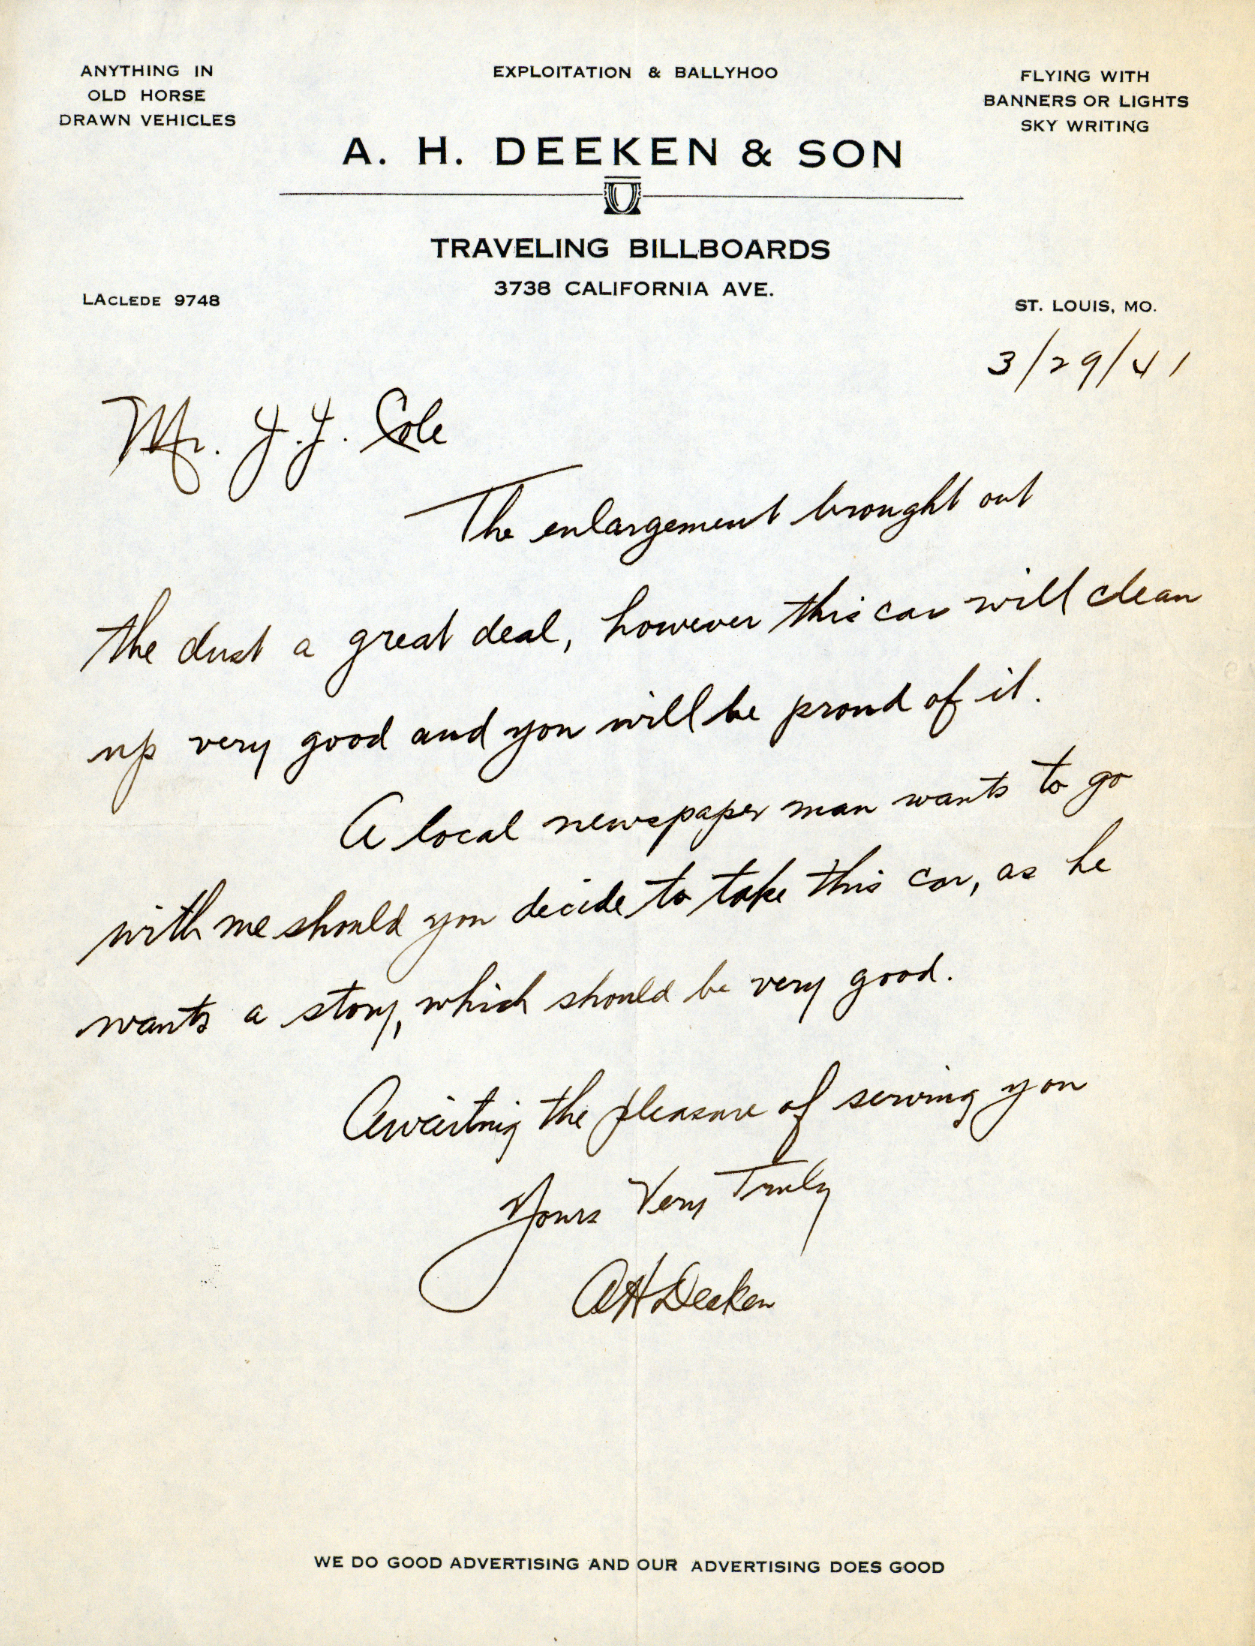 ANYTHING IN
OLD HORSE
DRAWN VEHICLES
EXPLOITATION & BALLYHOO
FLYING WITH
BANNERS OR LIGHTS
SKY WRITING
A. H. DEEKEN & SON
TRAVELING BILLBOARDS
3738 CALIFORNIA AVE.
LACLEDE 9748
ST. LOUIS, MO.
3/29/41
Mr. J. J. Cole
The enlargement brought out
the dust a great deal, however this car will clean
up very good and you will be proud of it.
A local newspaper man wants to go
with me should you decide to take this car, as he
wants a story, which should be very good.
Awaiting the pleasure of serving you
Yours Very Truly
AH Deeken
WE DO GOOD ADVERTISING AND OUR ADVERTISING DOES GOOD